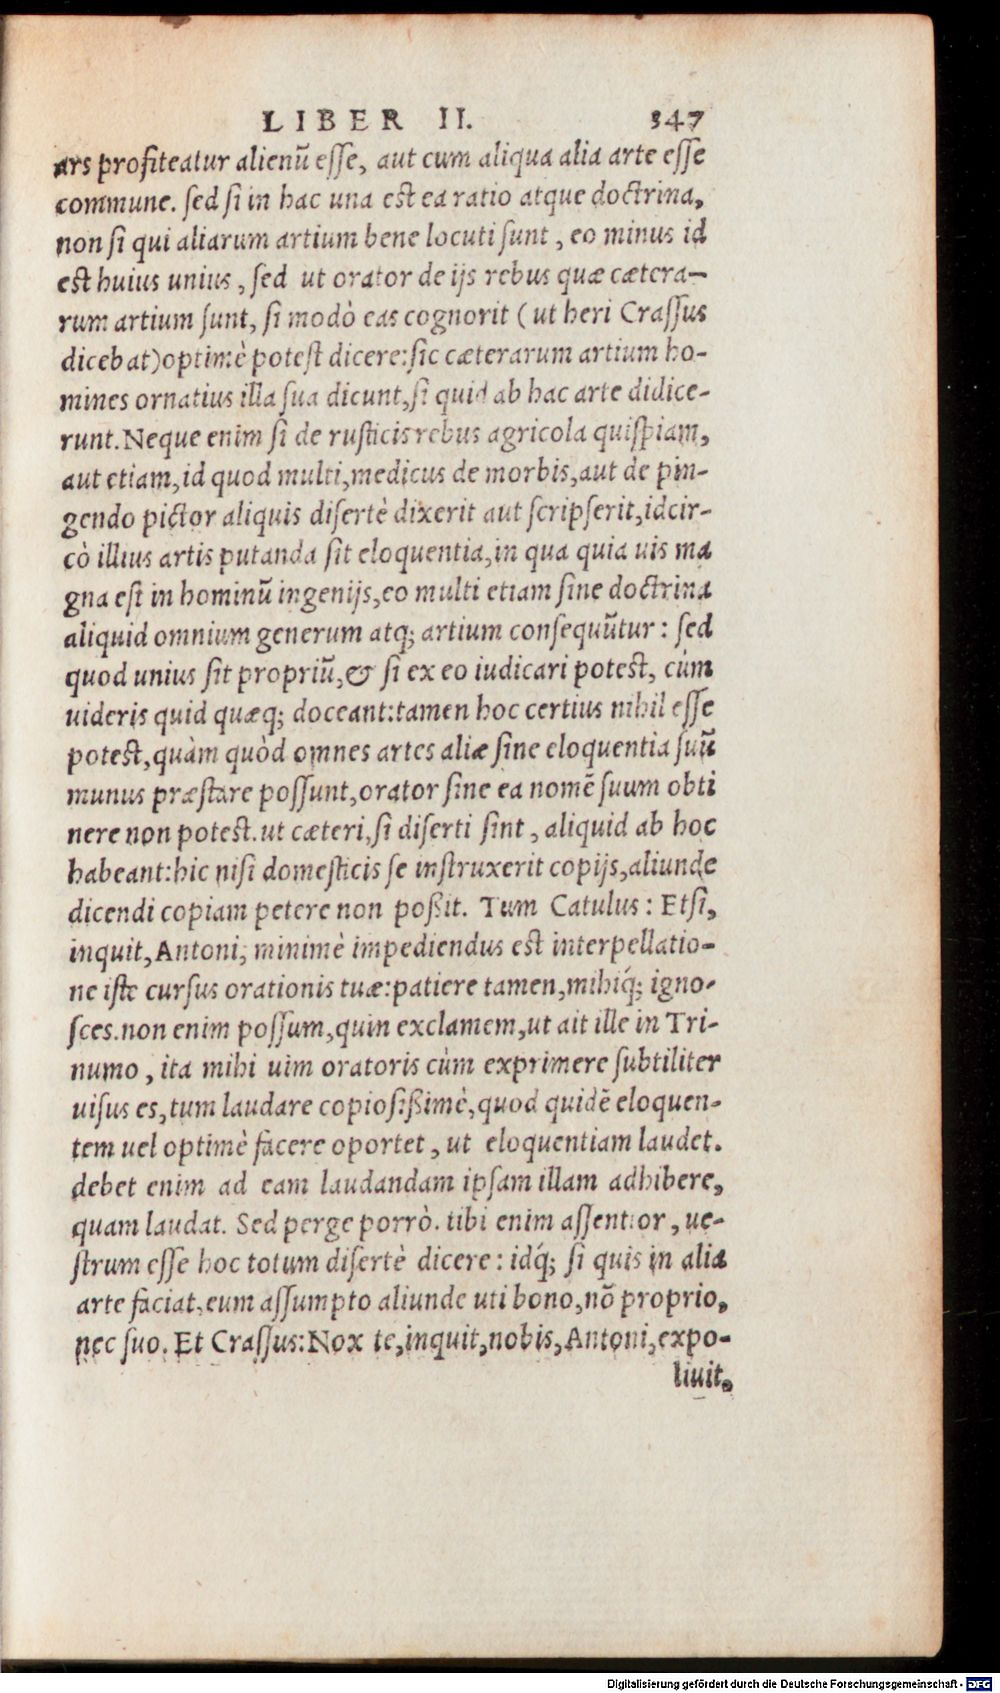 LIBER II. 347
ars profiteatur alienũ esse, aut cum aliqua alia arte esse
commune. sed si in hac una est ea ratio atque doctrina,
non si qui aliarum artium bene locuti sunt, eo minus id
est huius unius, sed ut orator de ijs rebus quæ cætera-
rum artium sunt, si modò eas cognorit (ut heri Crassus
dicebat) optimè potest dicere: sic cæterarum artium ho-
mines ornatius illa sua dicunt, si quid ab hac arte didice-
runt. Neque enim si de rusticis rebus agricola quispiam,
aut etiam, id quod multi, medicus de morbis, aut de pin-
gendo pictor aliquis disertè dixerit aut scripserit, idcir-
cò illius artis putanda sit eloquentia, in qua quia uis ma
gna est in hominũ ingenijs, eo multi etiam sine doctrina
aliquid omnium generum atq; artium consequũtur: sed
quod unius sit propriũ, & si ex eo iudicari potest, cùm
uideris quid quæq; doceant: tamen hoc certius nihil esse
potest, quàm quòd omnes artes aliæ sine eloquentia suũ
munus præstare possunt, orator sine ea nomẽ suum obti
nere non potest. ut cæteri, si diserti sint, aliquid ab hoc
habeant: hic nisi domesticis se instruxerit copijs, aliunde
dicendi copiam petere non poßit. Tum Catulus: Etsi,
inquit, Antoni, minimè impediendus est interpellatio-
ne iste cursus orationis tuæ: patiere tamen, mihiq́; igno-
sces. non enim possum, quin exclamem, ut ait ille in Tri-
numo, ita mihi uim oratoris cùm exprimere subtiliter
uisus es, tum laudare copiosißimè, quod quidẽ eloquen-
tem uel optimè facere oportet, ut eloquentiam laudet.
debet enim ad eam laudandam ipsam illam adhibere,
quam laudat. Sed perge porrò. tibi enim assentior, ue-
strum esse hoc totum disertè dicere: idq́; si quis in alia
arte faciat, eum assumpto aliunde uti bono, nõ proprio,
nec suo. Et Crassus: Nox te, inquit, nobis, Antoni, expo-
liuit,
Digitalisierung gefördert durch die Deutsche Forschungsgemeinschaft - DFG